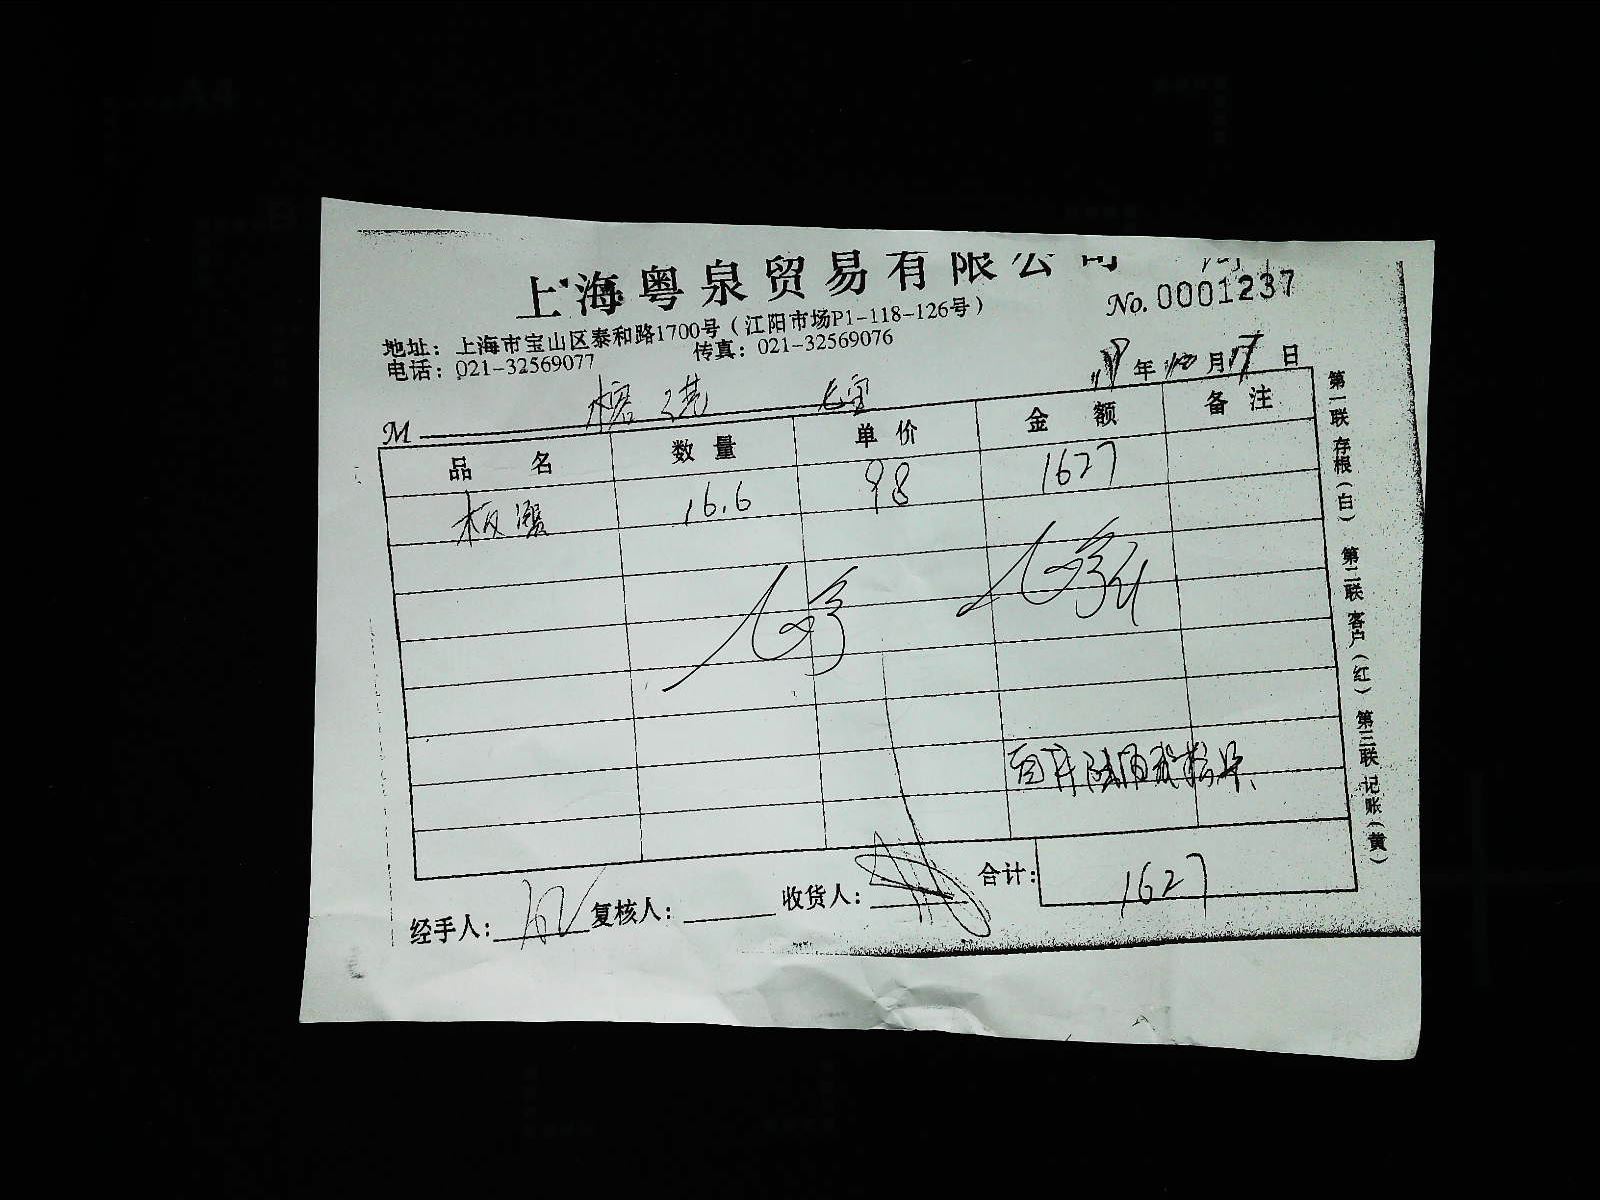 上海粤泉贸易有限公司
No. 0001237
地址：上海市宝山区泰和路1700号（江阳市场P1-118-126号）
电话：021-32569077 传真：021-32569076
年 月 17 日
M
品名 数量 单价 金额 备注
板蟹 16.6 98 1627
合计： 1627
经手人： 复核人： 收货人：
第一联 存根（白） 第二联 客户（红） 第三联 记账（黄）